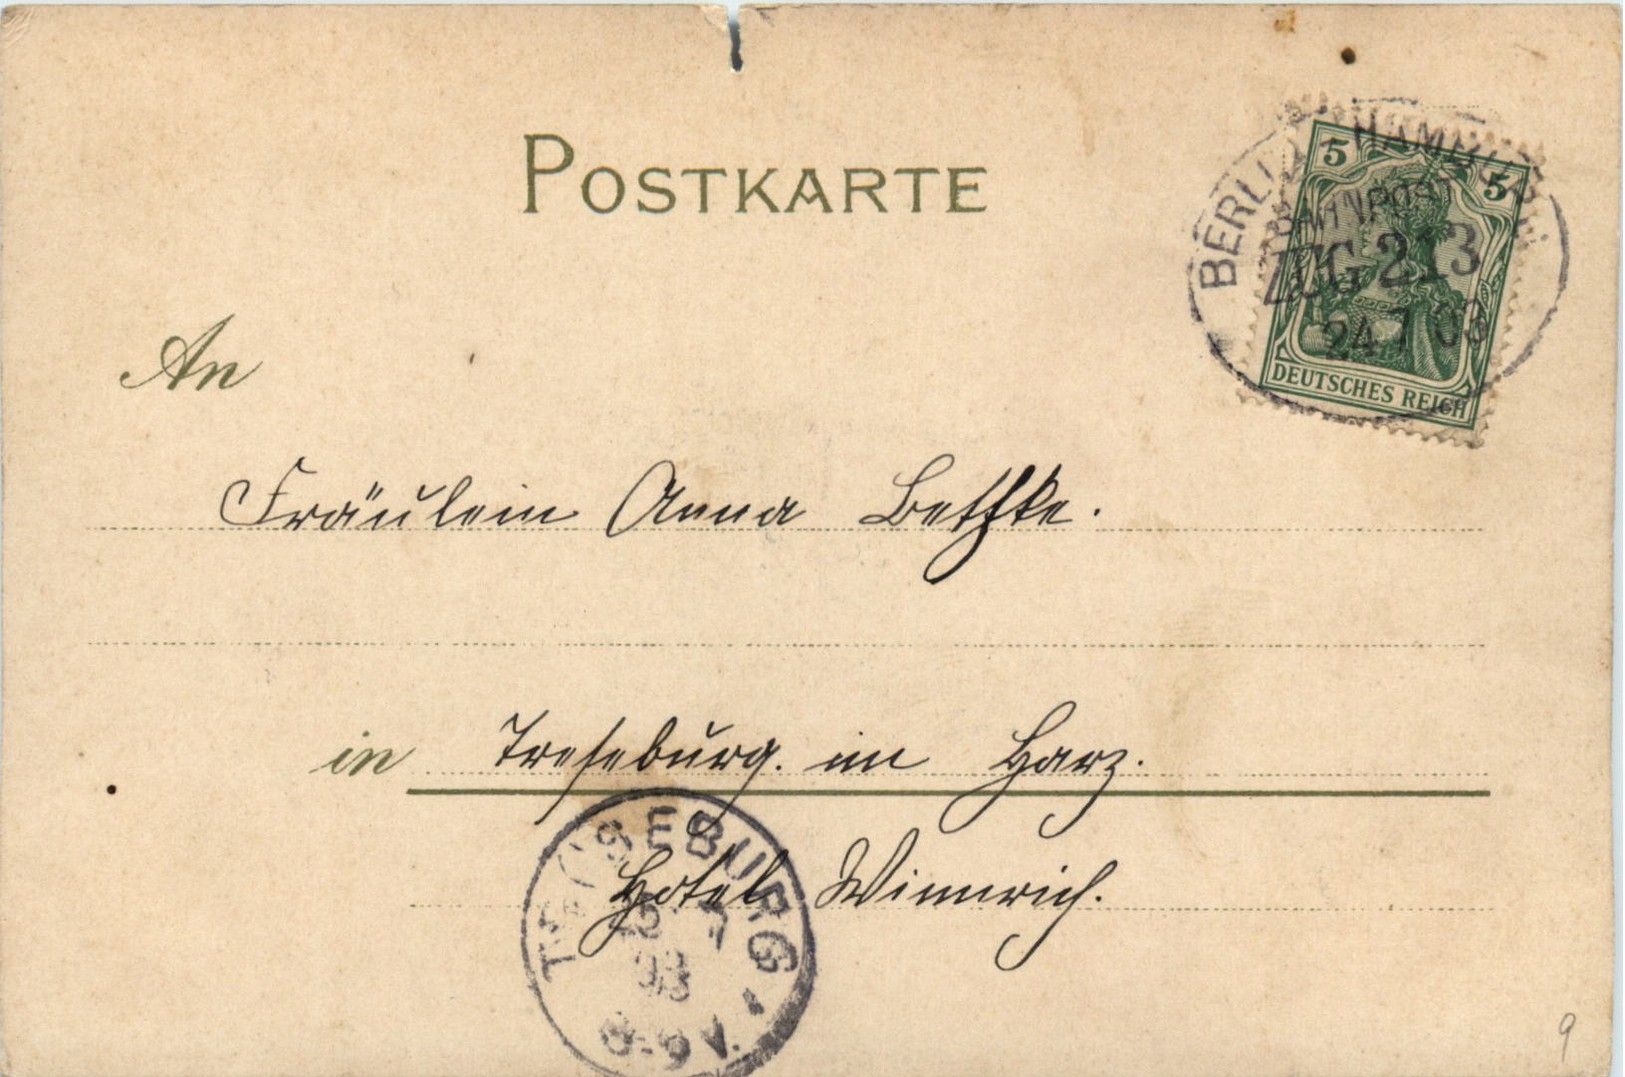 POSTKARTE
5 5
BERLIN - HAMBURG
BAHNPOST
ZUG 213
24 7 03
DEUTSCHES REICH
An
Fräulein Anna Bethke.
in Treseburg. im Harz.
Hotel Wiemrich.
TRESEBURG
7
03
8-9 V.
9